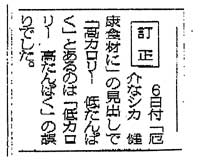 訂正
6日付「厄
介なシカ 健
康食材に」の見出しで
「高カロリー 低たんぱ
く」とあるのは「低カロ
リー 高たんぱく」の誤
りでした。